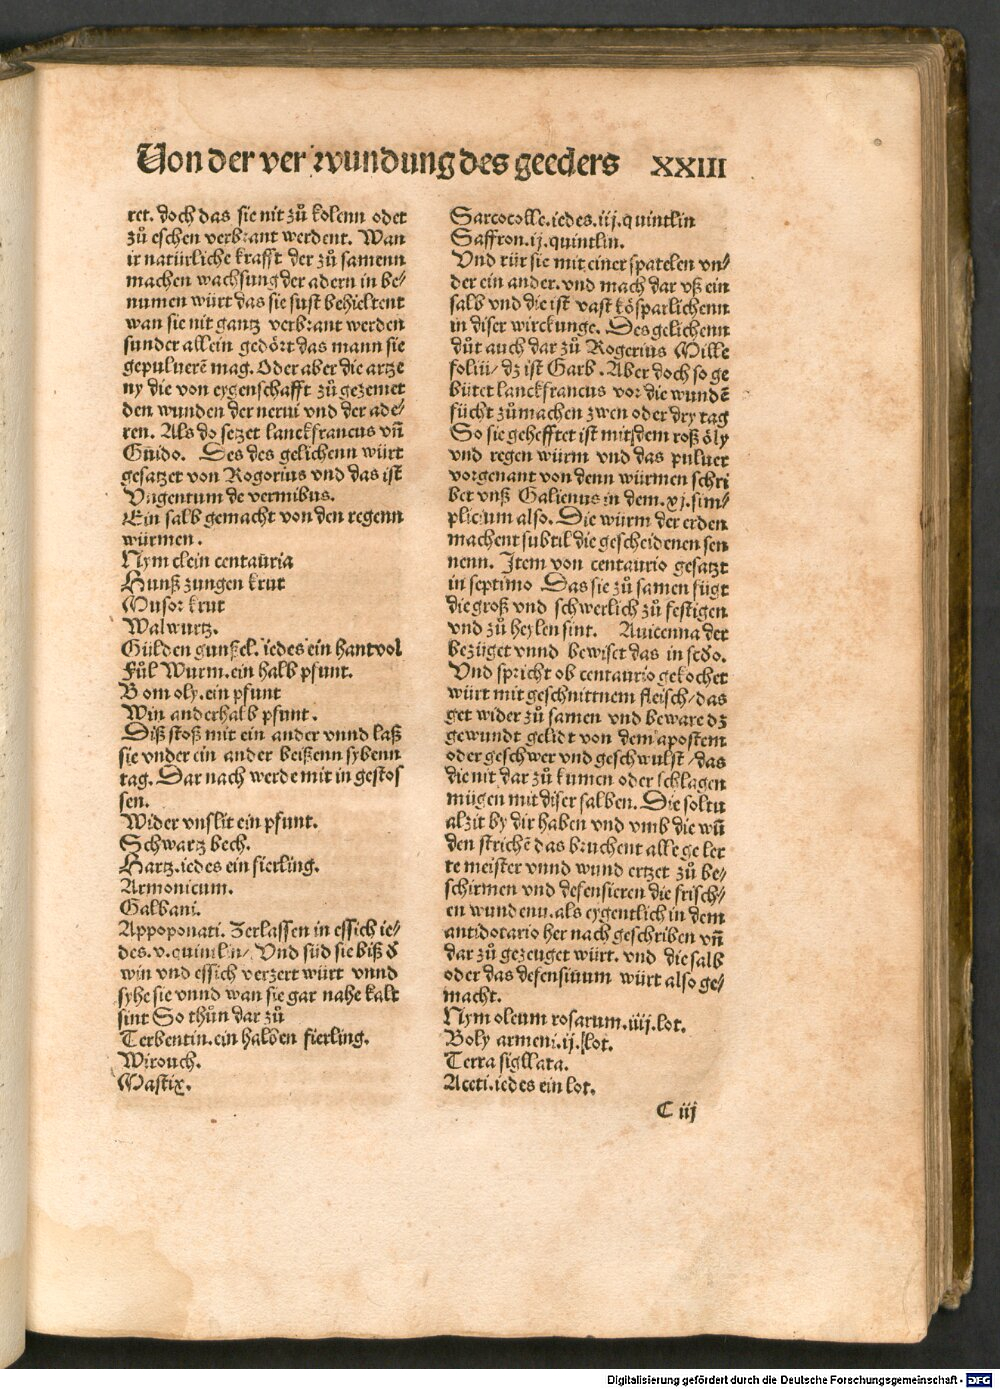 Von der verwundung des geeders XXIII
ret. doch das sie nit zů kolenn odet
zů eschen verbrant werdent. Wan
ir natürliche krafft der zů samenn
machen wachsung der adern in be⸗
numen würt das sie sust behieltent
wan sie nit gantz verbrant werden
sunder allein gedört das mann sie
gepuluerē mag. Oder aber die artze
ny die von eygenschafft zů gezemet
den wunden der nerui vnd der ade⸗
ren. Als do setzet lanckfrancus vñ
Guido. Des des gelichenn würt
gesatzet von Rogorius vnd das ist
Vngentum de vermibus.
Ein salb gemacht von den regenn
würmen.
Nym clein centauria
Hunß zungen krut
Musor krut
Walwurtz.
Gülden gunßel. iedes ein hantvol
Fül Wurm. ein halb pfunt.
Bom oly. ein pfunt
Win anderhalb pfunt.
Diß stoß mit ein ander vnnd laß
sie vnder ein ander beißenn sybenn
tag. Dar nach werde mit in gestos
sen.
Wider vnslit ein pfunt.
Schwartz bech.
Hartz. iedes ein fierling.
Armonicum.
Galbani.
Appoponati. Zerlassen in essich ie⸗
des. v. quintlin/ Vnd süd sie biß ď
win vnd essich verzert würt vnnd
syhe sie vnnd wan sie gar nahe kalt
sint So thůn dar zů
Terbentin. ein halben fierling.
Wirouch.
Mastix.
Sarcocolle. iedes. iij. quintlin
Saffron. ij. quintlin.
Vnd rür sie mit einer spatelen vn⸗
der ein ander. vnd mach dar vß ein
salb vnd die ist vast kösparlichenn
in diser wirckunge. Des gelichenn
důt auch dar zů Rogerius Mille
foliii/ dz ist Garb. Aber doch so ge
bütet lanckfrancus vor die wundē
fücht zůmachen zwen oder dry tag
So sie gehefftet ist mit dem roß öly
vnd regen würm vnd das puluer
vorgenant von denn würmen schri
bet vnß Galienus in dem. xj. sim⸗
plicium also. Die würm der erden
machent subtil die gescheidenen sen
nenn. Item von centaurio gesatzt
in septimo Das sie zů samen fügt
die groß vnd schwerlich zů festigen
vnd zů heylen sint. Auicenna der
bezüget vnnd bewiset das in sc̄do.
Vnd spricht ob centaurio gekochet
würt mit geschnittnem fleisch/ das
get wider zů samen vnd beware dz
gewundt gelidt von dem apostem
oder geschwer vnd geschwulst/ das
die nit dar zů kumen oder schlagen
mügen mit diser salben. Die soltu
alzit by dir haben vnd vmb die wū
den strichē das bruchent alle geler
te meister vnnd wund ertzet zů be⸗
schirmen vnd defensieren die frisch⸗
en wundenn. als eygentlich in dem
antidotario her nach geschriben vñ
dar zů gezeuget würt. vnd die salb
oder das defensiuum würt also ge⸗
macht.
Nym oleum rosarum. iiij. lot.
Boly armeni. ij. lot.
Terra sigllata.
Aceti. iedes ein lot.
C iij
Digitalisierung gefördert durch die Deutsche Forschungsgemeinschaft - DFG